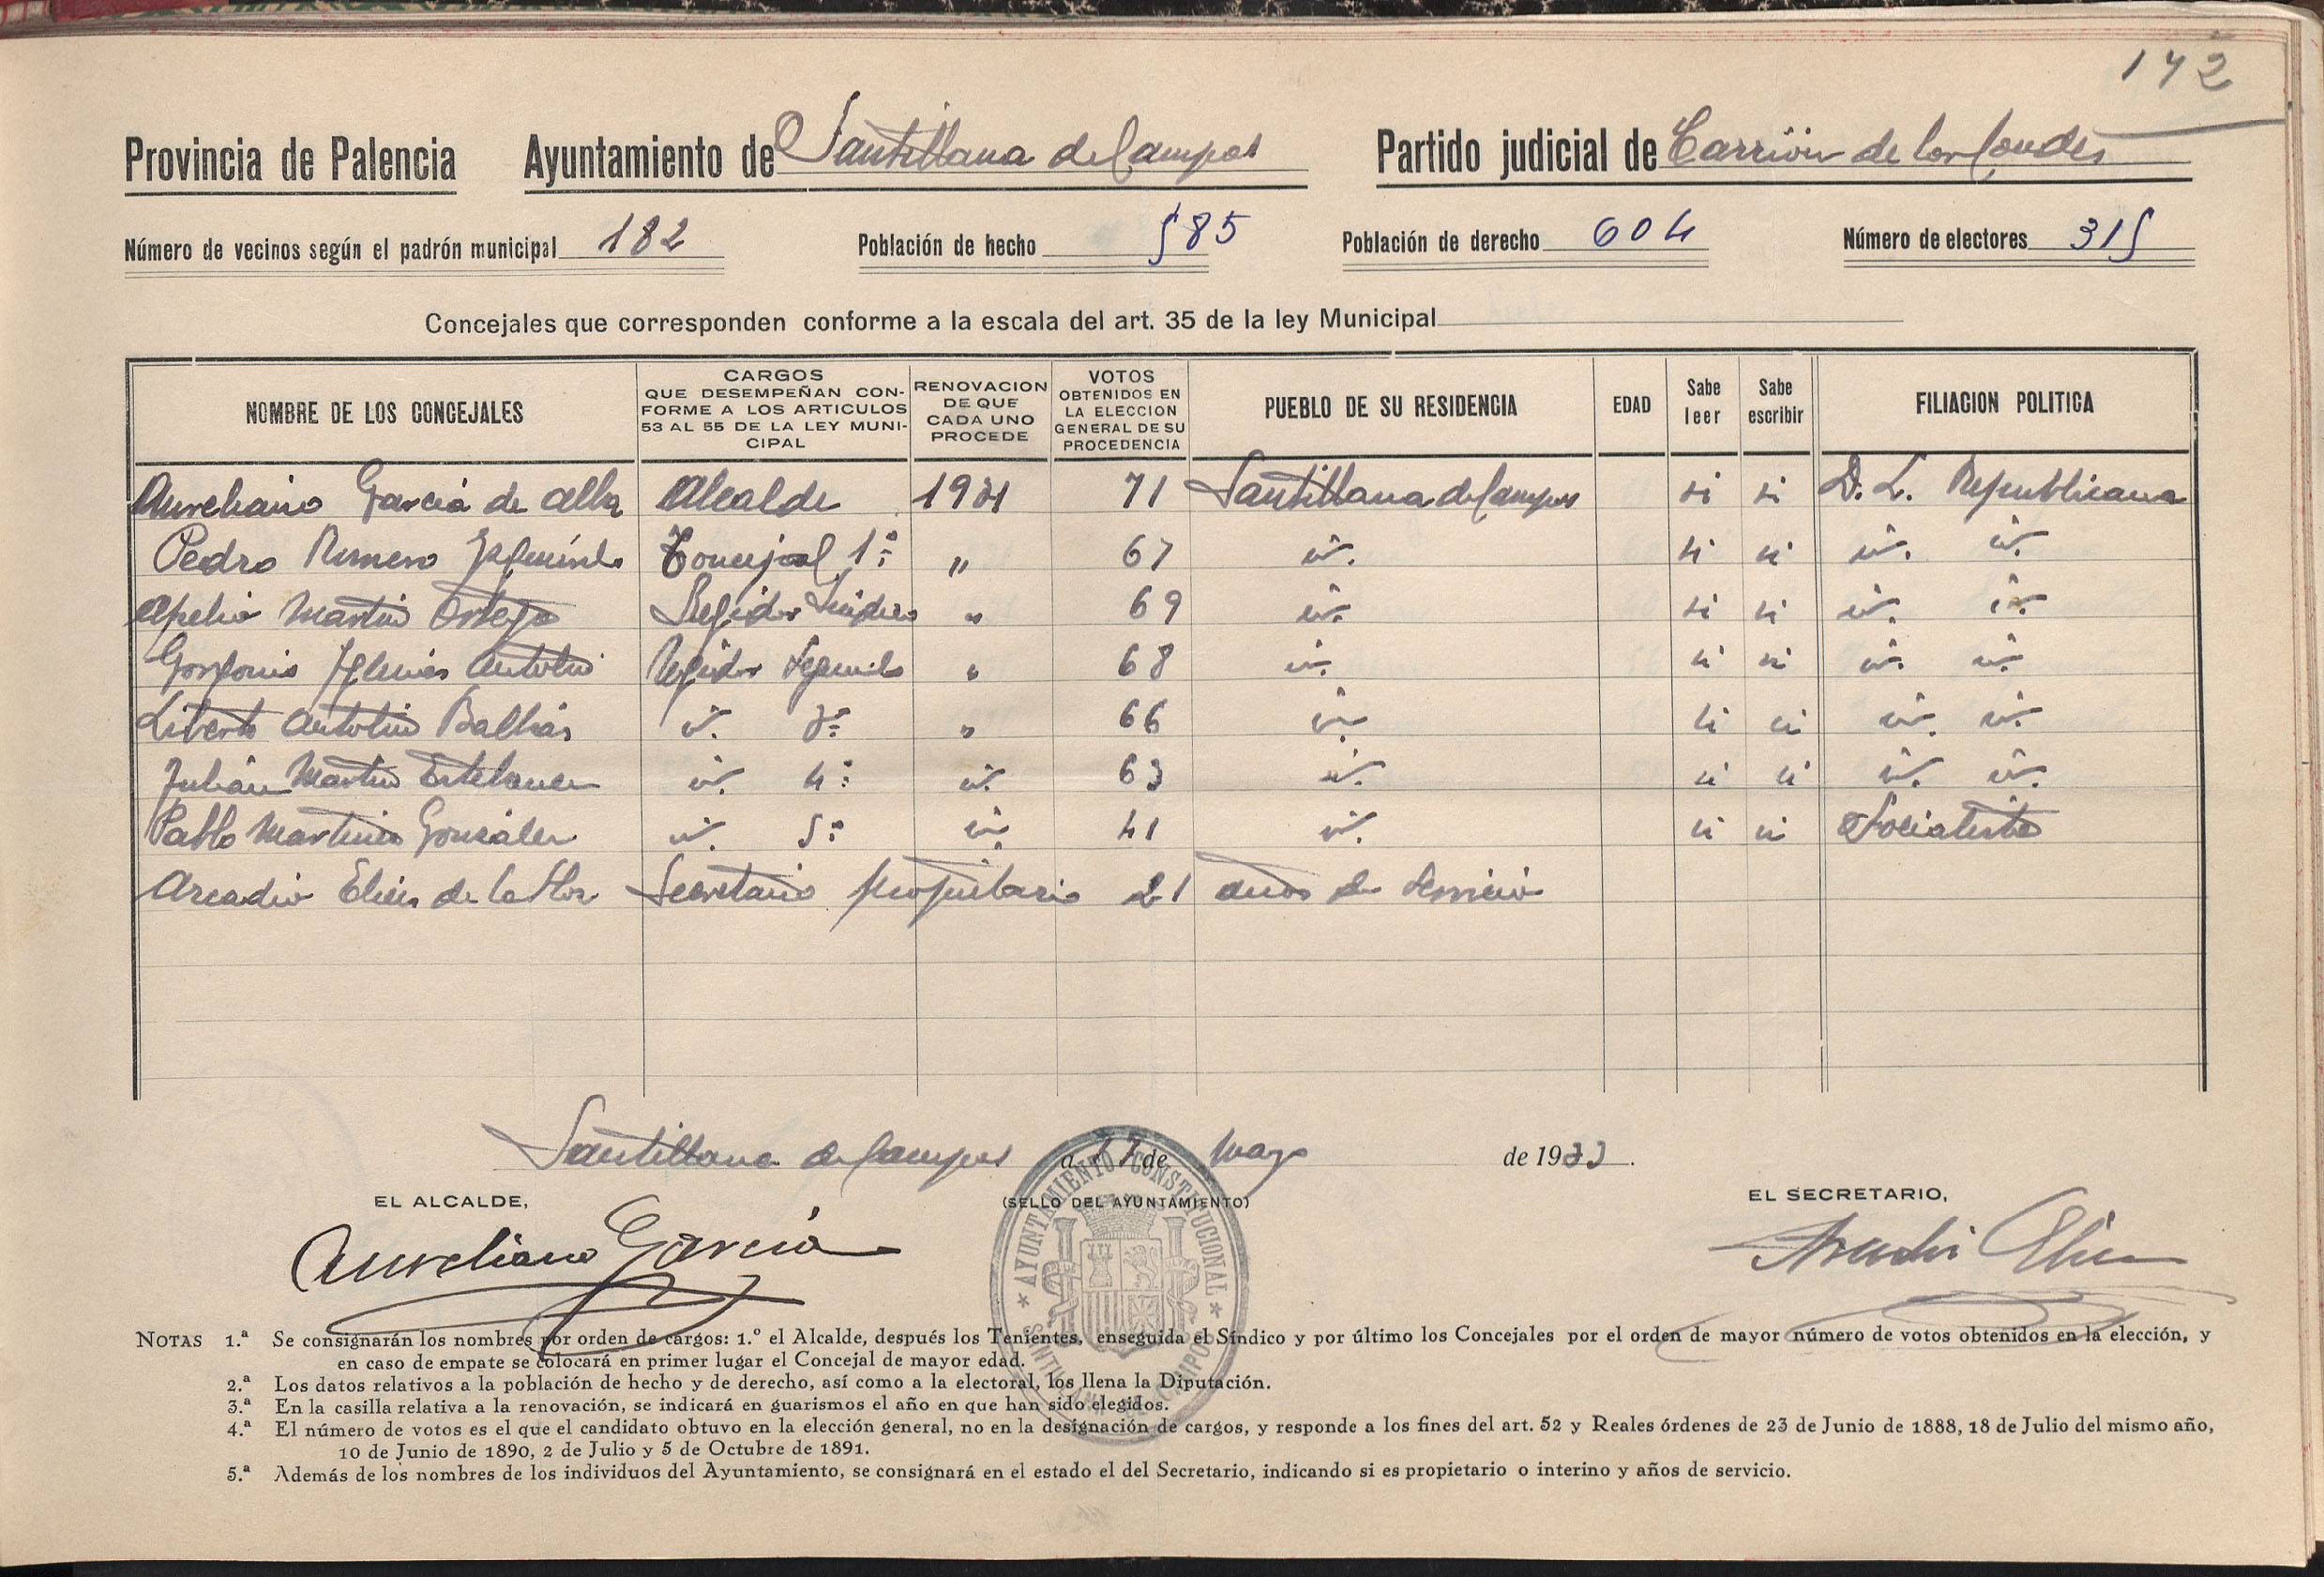 142
Provincia de Palencia Ayuntamiento de Santillana de Campos Partido judicial de Carrión de los Condes
Número de vecinos según el padrón municipal 182 Población de hecho 585 Población de derecho 604 Número de electores 315
Concejales que corresponden conforme a la escala del art. 35 de la ley Municipal
NOMBRE DE LOS CONCEJALES
CARGOS
QUE DESEMPEÑAN CON-
FORME A LOS ARTICULOS
53 AL 55 DE LA LEY MUNI-
CIPAL
RENOVACION
DE QUE
CADA UNO
PROCEDE
VOTOS
OBTENIDOS EN
LA ELECCION
GENERAL DE SU
PROCEDENCIA
PUEBLO DE SU RESIDENCIA
EDAD
Sabe
leer
Sabe
escribir
FILIACION POLITICA
Aureliano García de Alba Alcalde 1931 71 Santillana de Campos si si D. L. Republicana
Pedro Romero Concejal 1º " 67 id. si si id. id.
Martin Ortega Regidor Sindico " 69 id. si si id. id.
Gorgonio Iglesias Antolin Regidor Segundo " 68 id. si si id. id.
Liberto Antolin id. 3º " 66 id. si si id. id.
Julián Martin id. 4º id. 63 id. si si id. id.
Pablo Martinez González id. 5º id. 41 id. si si Socialista
Arcadio de la Hoz Secretario propietario 21 años de servicio
Santillana de Campos a 17 de Mayo de 1933.
EL ALCALDE, (SELLO DEL AYUNTAMIENTO) EL SECRETARIO,
Aureliano García
AYUNTAMIENTO CONSTITUCIONAL
SANTILLANA DE CAMPOS
NOTAS 1.ª Se consignarán los nombres por orden de cargos: 1.º el Alcalde, después los Tenientes, enseguida el Síndico y por último los Concejales por el orden de mayor número de votos obtenidos en la elección, y
en caso de empate se colocará en primer lugar el Concejal de mayor edad.
2.ª Los datos relativos a la población de hecho y de derecho, así como a la electoral, los llena la Diputación.
3.ª En la casilla relativa a la renovación, se indicará en guarismos el año en que han sido elegidos.
4.ª El número de votos es el que el candidato obtuvo en la elección general, no en la designación de cargos, y responde a los fines del art. 52 y Reales órdenes de 23 de Junio de 1888, 18 de Julio del mismo año,
10 de Junio de 1890, 2 de Julio y 5 de Octubre de 1891.
5.ª Además de los nombres de los individuos del Ayuntamiento, se consignará en el estado el del Secretario, indicando si es propietario o interino y años de servicio.